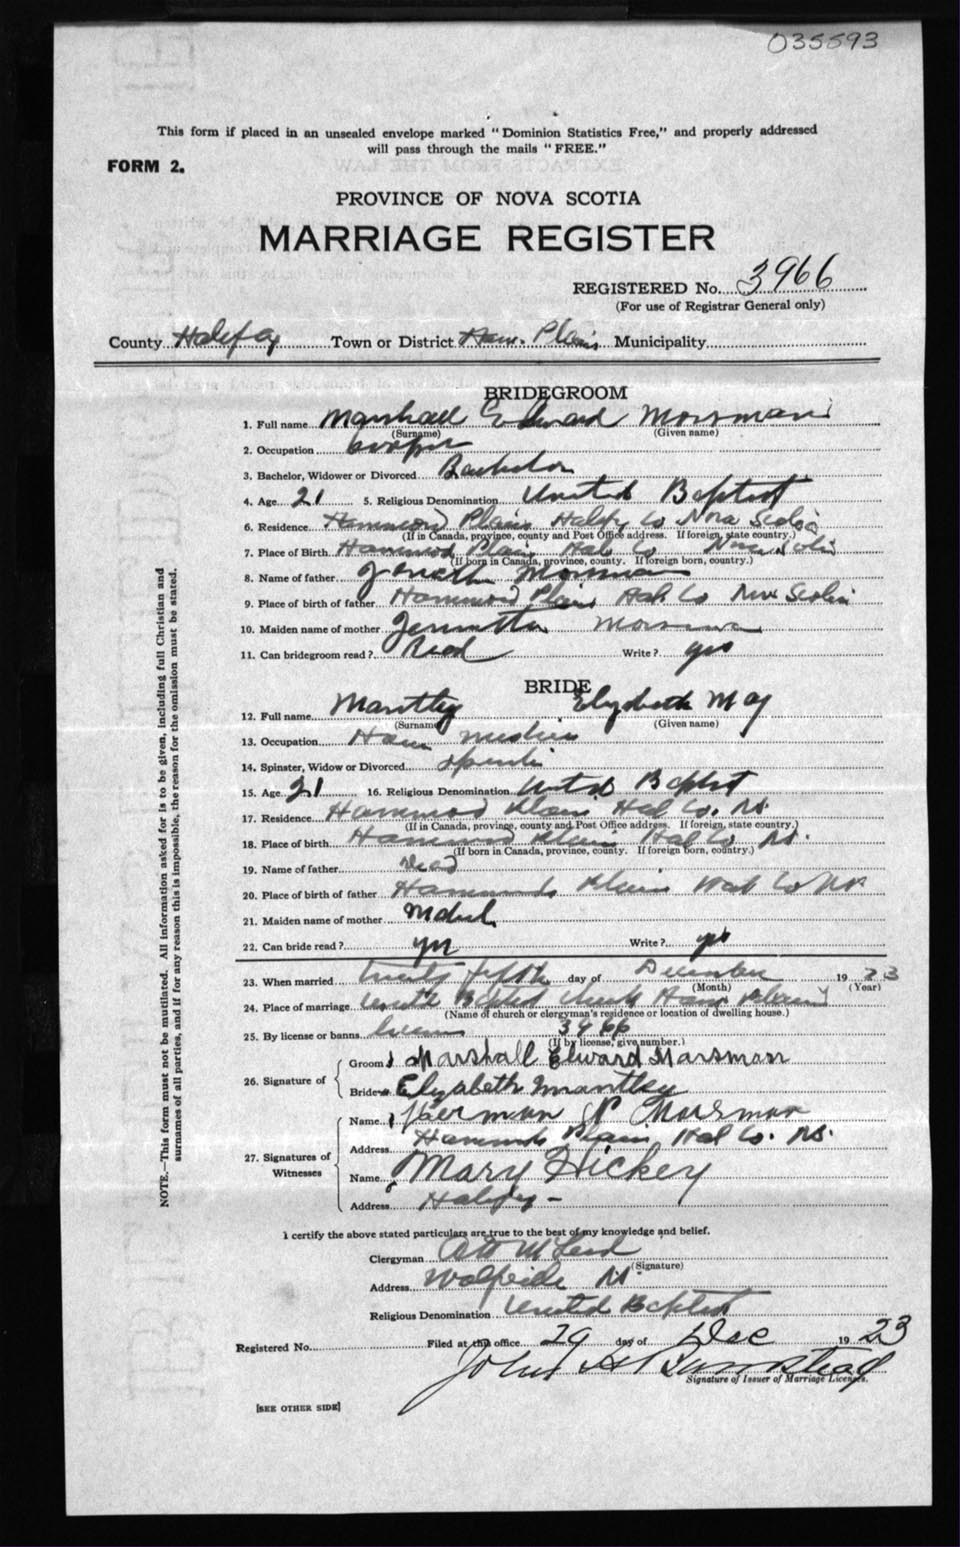 035593
This form if placed in an unsealed envelope marked "Dominion Statistics Free," and properly addressed
will pass through the mails "FREE."
FORM 2.
PROVINCE OF NOVA SCOTIA
MARRIAGE REGISTER
REGISTERED No. 3966
(For use of Registrar General only)
County Halifax Town or District Ham. Plains Municipality
BRIDEGROOM
1. Full name Marshall Edward Morsman
(Surname) (Given name)
2. Occupation Cooper
3. Bachelor, Widower or Divorced Bachelor
4. Age 21 5. Religious Denomination United Baptist
6. Residence Hammond Plains Halifx Co Nova Scotia
(If in Canada, province, county and Post Office address. If foreign, state country.)
7. Place of Birth Hammond Plains Hal Co Nova Scotia
(If born in Canada, province, county. If foreign born, country.)
8. Name of father Morsman
9. Place of birth of father Hammond Plains Hal Co Nova Scotia
10. Maiden name of mother Morsman
11. Can bridegroom read? Read Write? yes
BRIDE
12. Full name Mantley Elyzbeth May
(Surname) (Given name)
13. Occupation Ham
14. Spinster, Widow or Divorced
15. Age 21 16. Religious Denomination United Baptist
17. Residence Hammond Plains Hal Co. NS.
(If in Canada, province, county and Post Office address. If foreign, state country.)
18. Place of birth Hammond Plains Hal Co NS.
(If born in Canada, province, county. If foreign born, country.)
19. Name of father Dead
20. Place of birth of father Hammonds Plains Hal Co NS
21. Maiden name of mother
22. Can bride read? yes Write? yes
23. When married twenty fifth day of December 1923
(Month) (Year)
24. Place of marriage United Baptist Church Ham Plains
(Name of church or clergyman's residence or location of dwelling house.)
25. By license or banns License 3966
(If by license, give number.)
26. Signature of
Groom Marshall Edward Marsman
Bride Elyzabeth Mantley
27. Signatures of Witnesses
Name Herman P Morsman
Address Hammonds Plain Hal Co. NS.
Name Mary Hickey
Address Halifax -
I certify the above stated particulars are true to the best of my knowledge and belief.
Clergyman
(Signature)
Address Wolfville NS.
Religious Denomination United Baptist
Registered No. Filed at the office 29 day of Dec 1923
John H
Signature of Issuer of Marriage Licenses.
[SEE OTHER SIDE]
NOTE.—This form must not be mutilated. All information asked for is to be given, including full Christian and
surnames of all parties, and if for any reason this is impossible, the reason for the omission must be stated.